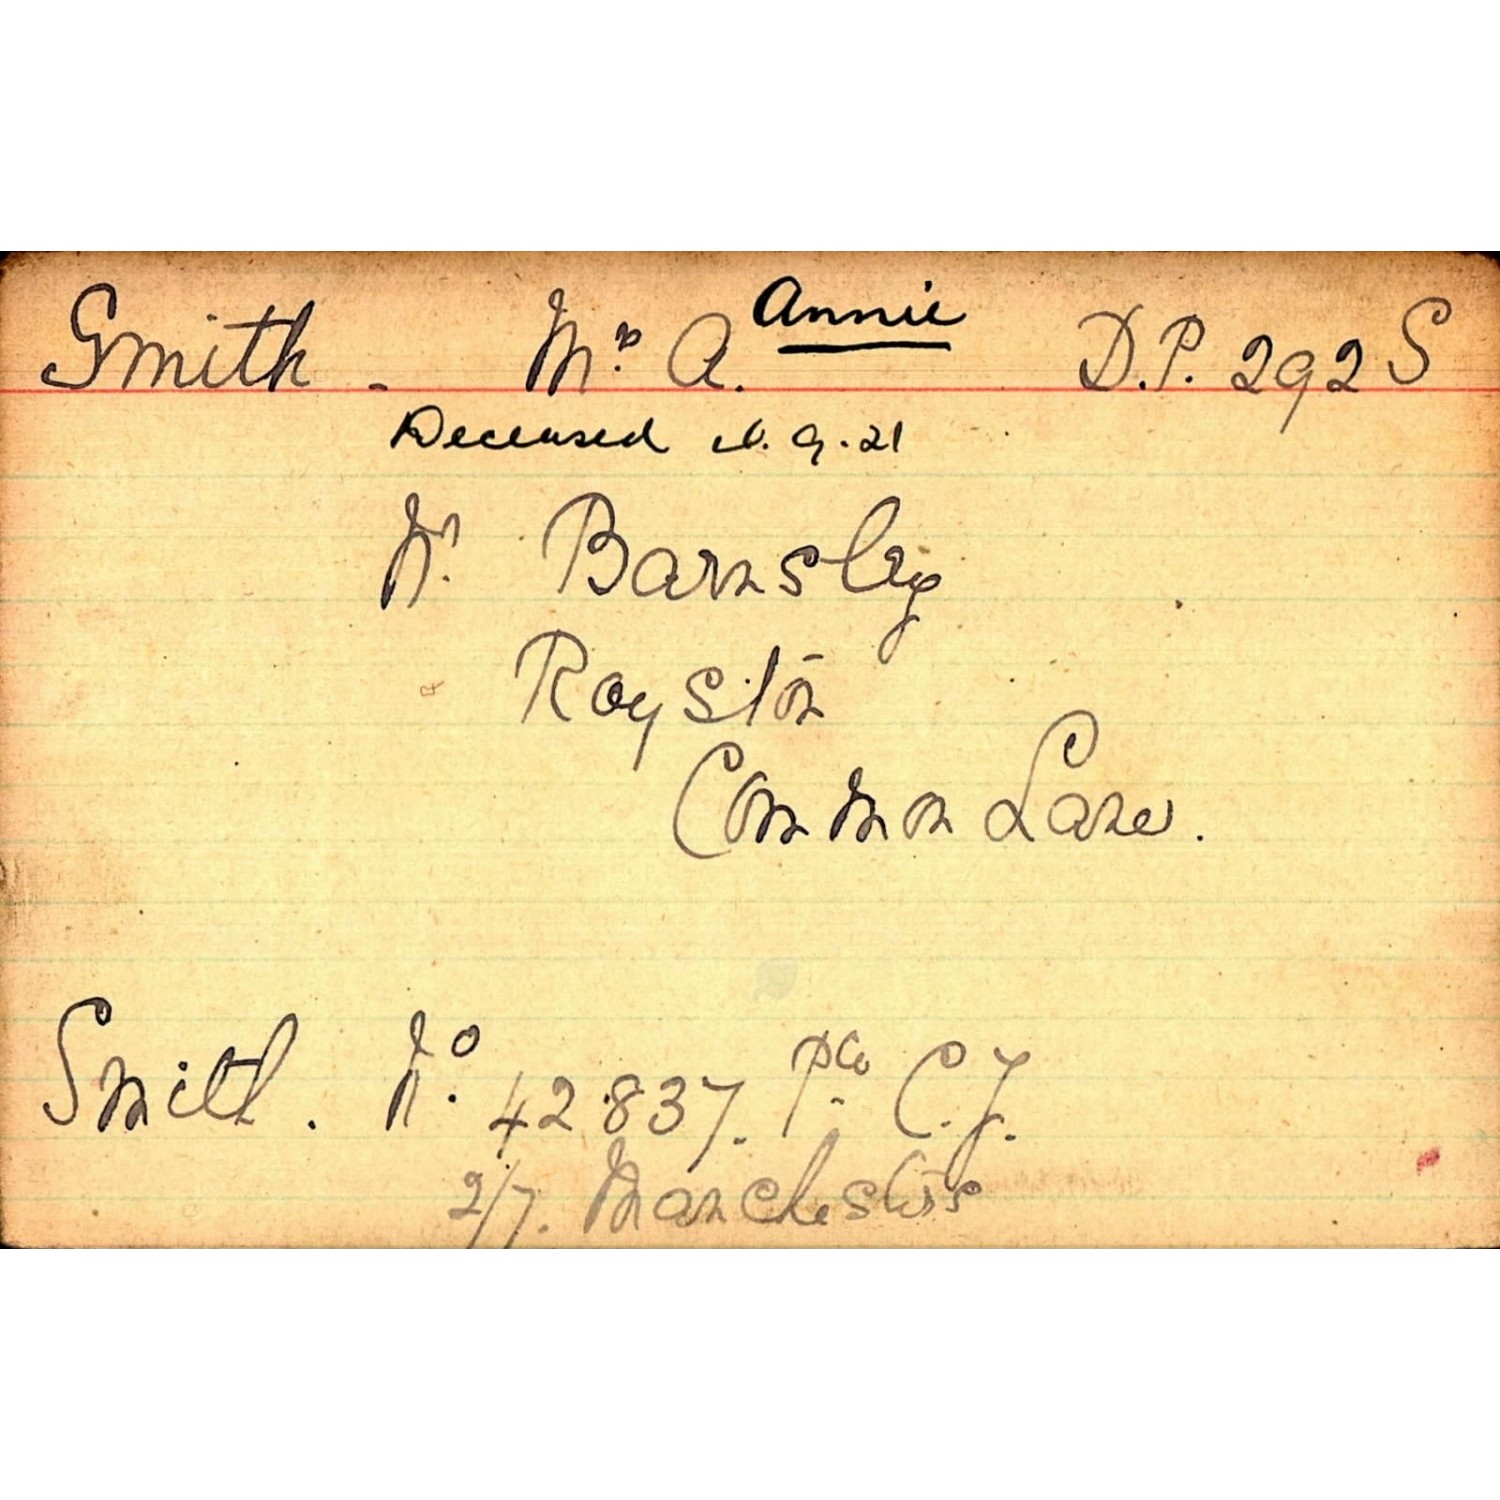 Smith - Mrs A. Annie D.P. 292 S
Deceased 9.21
Nr Barnsley
Royston
Common Lane.
Smith. No. 42837. Pte C.J.
2/7. Manchesters